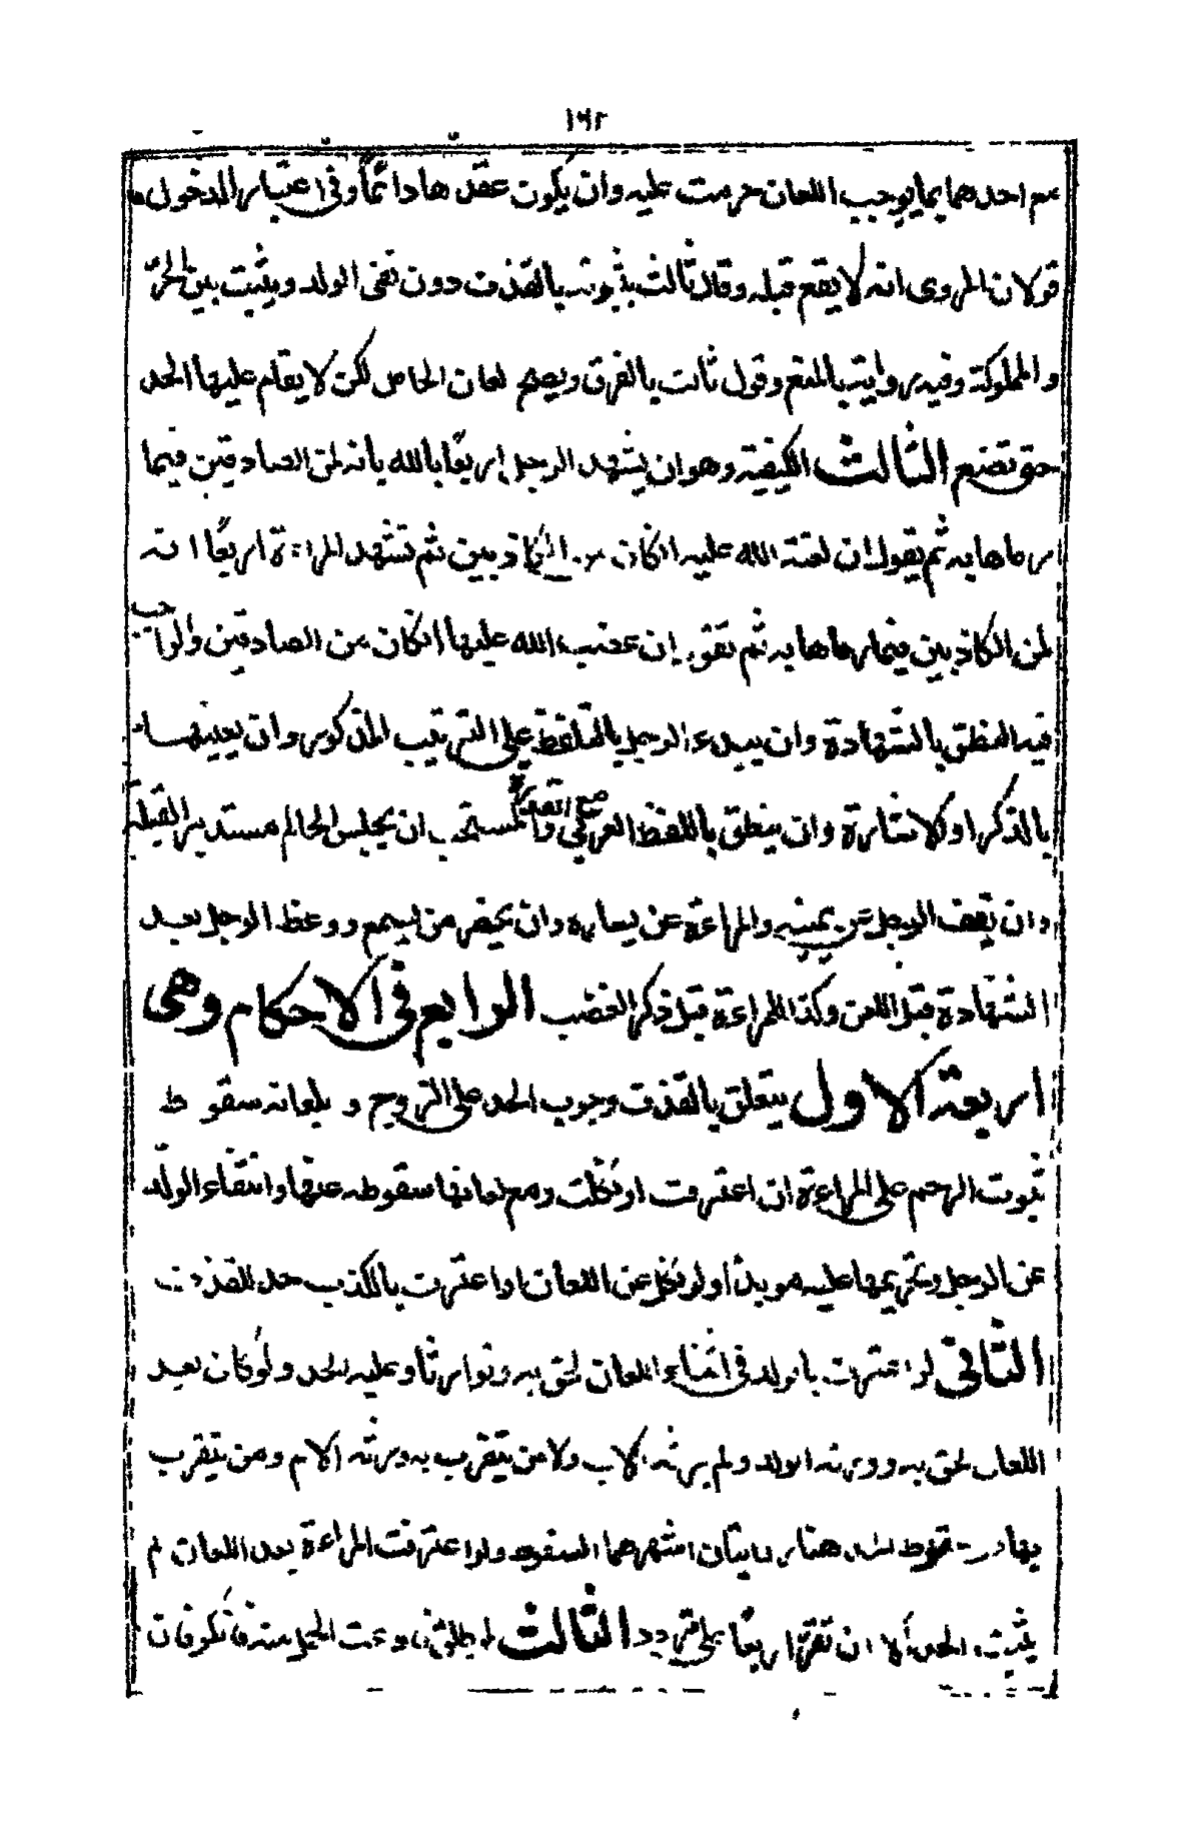 ١٦٢
مع احدهما بما يوجب اللعان حرمت عليه وان يكون عقدها دائما وفى اعتبار الدخول
قولان المروى انه لا يقع قبله وقال ثالث بثبوته بالقذف دون نفى الولد ويثبت بين الحرّ
والمملوكة وفيه رواية بالمنع وقول ثالث بالفرق ويصح لعان الحامل لكن لا يقام عليها الحد
حتى تضع الثالث الكيفية وهو ان يشهد الرجل اربعًا بالله بانه لمن الصادقين فيما
رماها به ثم يقول ان لعنة الله عليه ان كان من الكاذبين ثم تشهد المراءة اربعًا انه
لمن الكاذبين فيما رماها به ثم تقول ان غضب الله عليها ان كان من الصادقين والواجب
فيه النطق بالشهادة وان يبدء الرجل بالتلفظ على الترتيب المذكور وان يعينها
بالذكر او الاشارة وان ينطق باللفظ العربى مع القدرة والمستحب ان يجلس الحاكم مستدبر القبلة
وان يقف الرجل عن يمينه والمراءة عن يساره وان يحضر من يسمع ووعظ الرجل بعد
الشهادة قبل اللعن وكذا للمراءة قبل ذكر الغضب الرابع فى الاحكام وهى
اربعة الاول يتعلق بالقذف وجوب الحد على الزوج و بلعانه سقوط
ثبوت الرجم على المراءة ان اعترفت او نكلت ومع لعانها سقوطه عنها وانتفاء الولد
عن الرجل وتحريمها عليه موبدًا ولو نكل عن اللعان او اعترف بالكذب حد للقذف
الثانى لو اعترف بالولد فى اثناء اللعان لحق به وتوارثا وعليه الحد ولو كان بعد
اللعان لحق به وورثه الولد ولم يرثه الاب ولا من يتقرب به وترثه الام ومن يتقرب
بها وفى سقوط الحد هنا روايتان اشهرهما السقوط ولو اعترفت المراءة بعد اللعان لم
يثبت الحد الا ان تقر اربعًا على تردد الثالث لو طلق وادعت الحمل منه فانكر فان